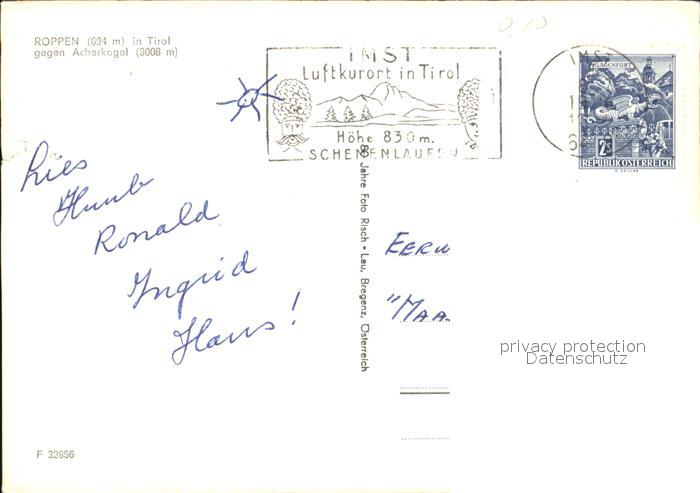 ROPPEN (694 m) in Tirol
gegen Acherkogel (3008 m)
IMST
Luftkurort in Tirol
Höhe 830m.
SCHEMENLAUFEN
IMST
KLAGENFURT
2S
REPUBLIK ÖSTERREICH
Lies
Huub
Ronald
Ingrid
Hans!
80 Jahre Foto Risch-Lau, Bregenz, Österreich
EERW
"MAA
privacy protection
Datenschutz
F 32856